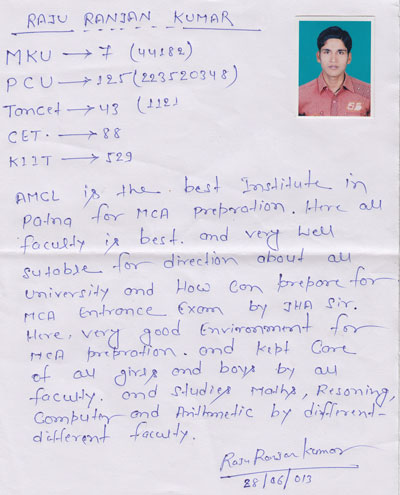 RAJU RANJAN KUMAR
MKU → 7 (44182)
PCU → 125 (223520348)
Toncet → 43 (1121
CET. → 88
KIIT → 529
AMCL is the best Institute in
Patna for MCA preparation. Here all
faculty is best. and very well
sutable for direction about all
University and How can prepare for
MCA Entrance Exam by JHA Sir.
Here, very good Environment for
MCA prepration. and kept care
of all girls and boys by all
faculty. and studies Maths, Resoning,
Computer and Arithmetic by different-
different faculty.
Raju Ranjan Kumar
28/06/013